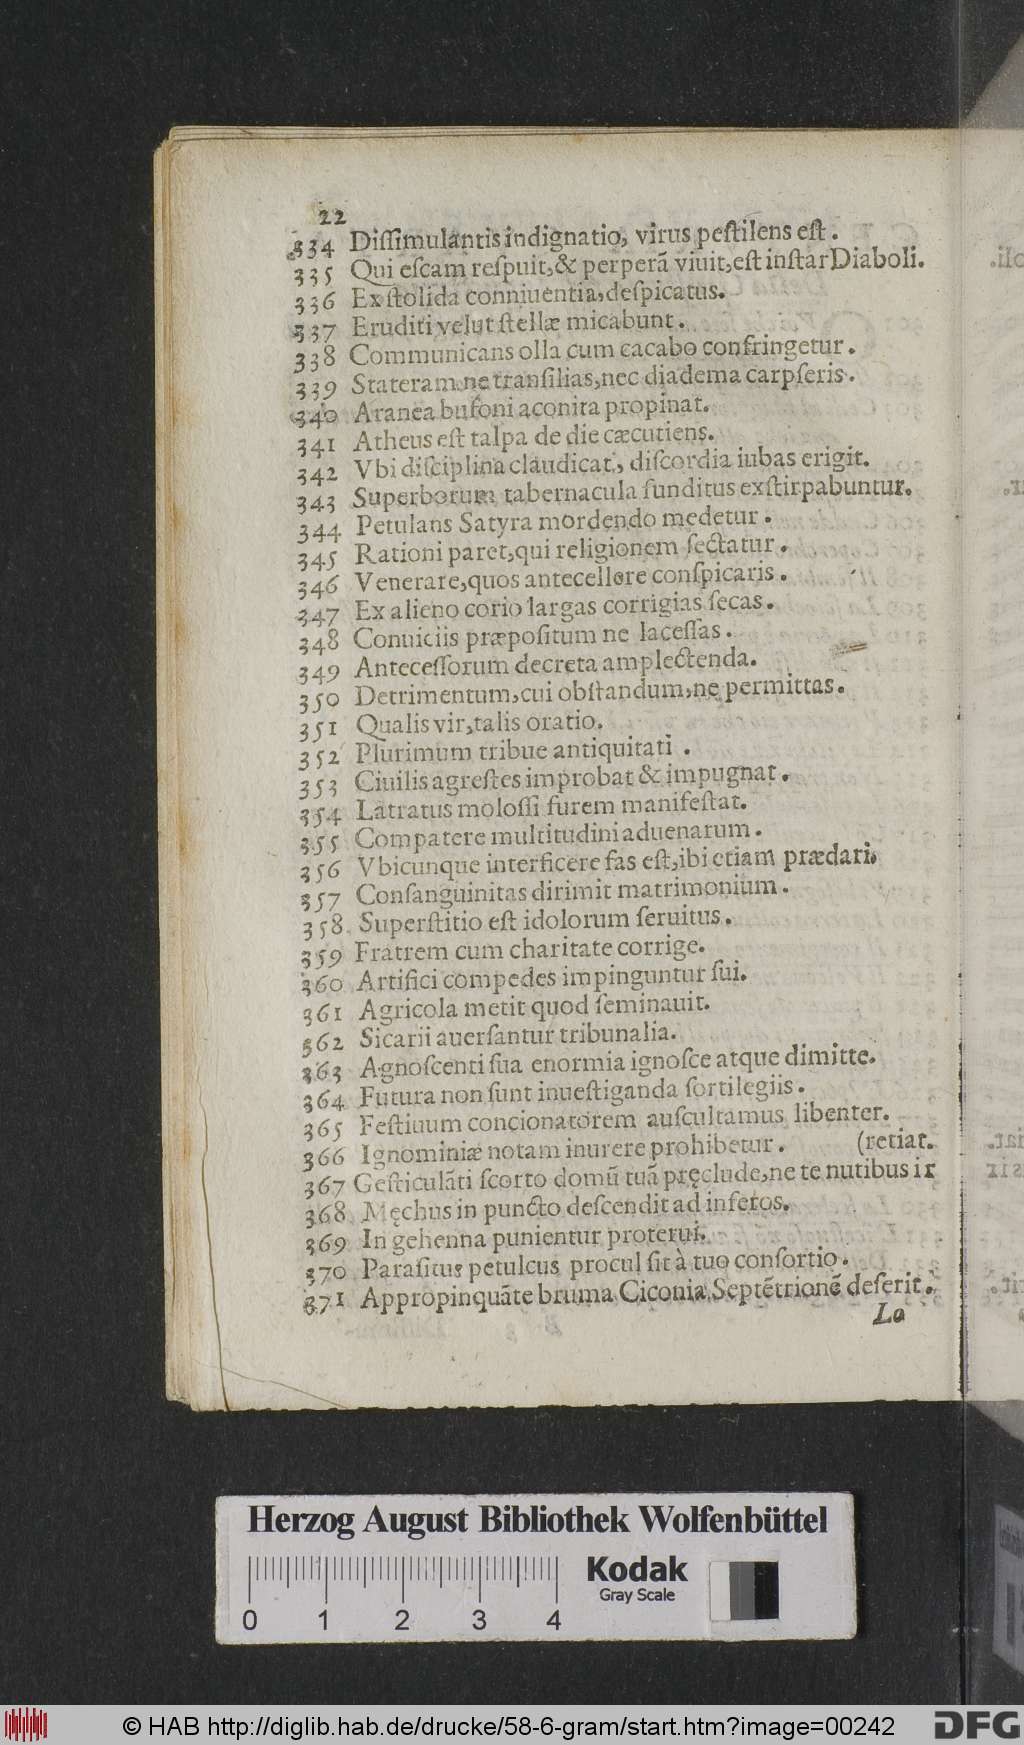 22
334 Diſſimulantis indignatio, virus peſtilens eſt.
335 Qui eſcam reſpuit, & perperã viuit, eſt inſtar Diaboli.
336 Ex ſtolida conniuentia, deſpicatus.
337 Eruditi velut ſtellæ micabunt.
338 Communicans olla cum cacabo confringetur.
339 Stateram ne tranſilias, nec diadema carpſeris.
340 Aranea bufoni aconita propinat.
341 Atheus eſt talpa de die cæcutiens.
342 Vbi diſciplina claudicat, diſcordia iubas erigit.
343 Superborum tabernacula funditus exſtirpabuntur.
344 Petulans Satyra mordendo medetur.
345 Rationi paret, qui religionem ſectatur.
346 Venerare, quos antecellere conſpicaris.
347 Ex alieno corio largas corrigias ſecas.
348 Conuiciis præpoſitum ne laceſſas.
349 Anteceſſorum decreta amplectenda.
350 Detrimentum, cui obſtandum, ne permittas.
351 Qualis vir, talis oratio.
352 Plurimum tribue antiquitati.
353 Ciuilis agreſtes improbat & impugnat.
354 Latratus moloſſi furem manifeſtat.
355 Compatere multitudini aduenarum.
356 Vbicunque interficere fas eſt, ibi etiam prædari.
357 Conſanguinitas dirimit matrimonium.
358 Superſtitio eſt idolorum ſeruitus.
359 Fratrem cum charitate corrige.
360 Artifici compedes impinguntur ſui.
361 Agricola metit quod ſeminauit.
362 Sicarii auerſantur tribunalia.
363 Agnoſcenti ſua enormia ignoſce atque dimitte.
364 Futura non ſunt inueſtiganda ſortilegiis.
365 Feſtiuum concionatorem auſcultamus libenter.
366 Ignominiæ notam inurere prohibetur. (retiat.
367 Geſticulãti ſcorto domũ tuã pręclude, ne te nutibus ir
368 Męchus in puncto deſcendit ad inferos.
369 In gehenna punientur proterui.
370 Paraſitus petulcus procul ſit à tuo conſortio.
371 Appropinquãte bruma Ciconia Septẽtrionẽ deſerit.
La
Herzog August Bibliothek Wolfenbüttel
Kodak
Gray Scale
0 1 2 3 4
© HAB http://diglib.hab.de/drucke/58-6-gram/start.htm?image=00242
DFG